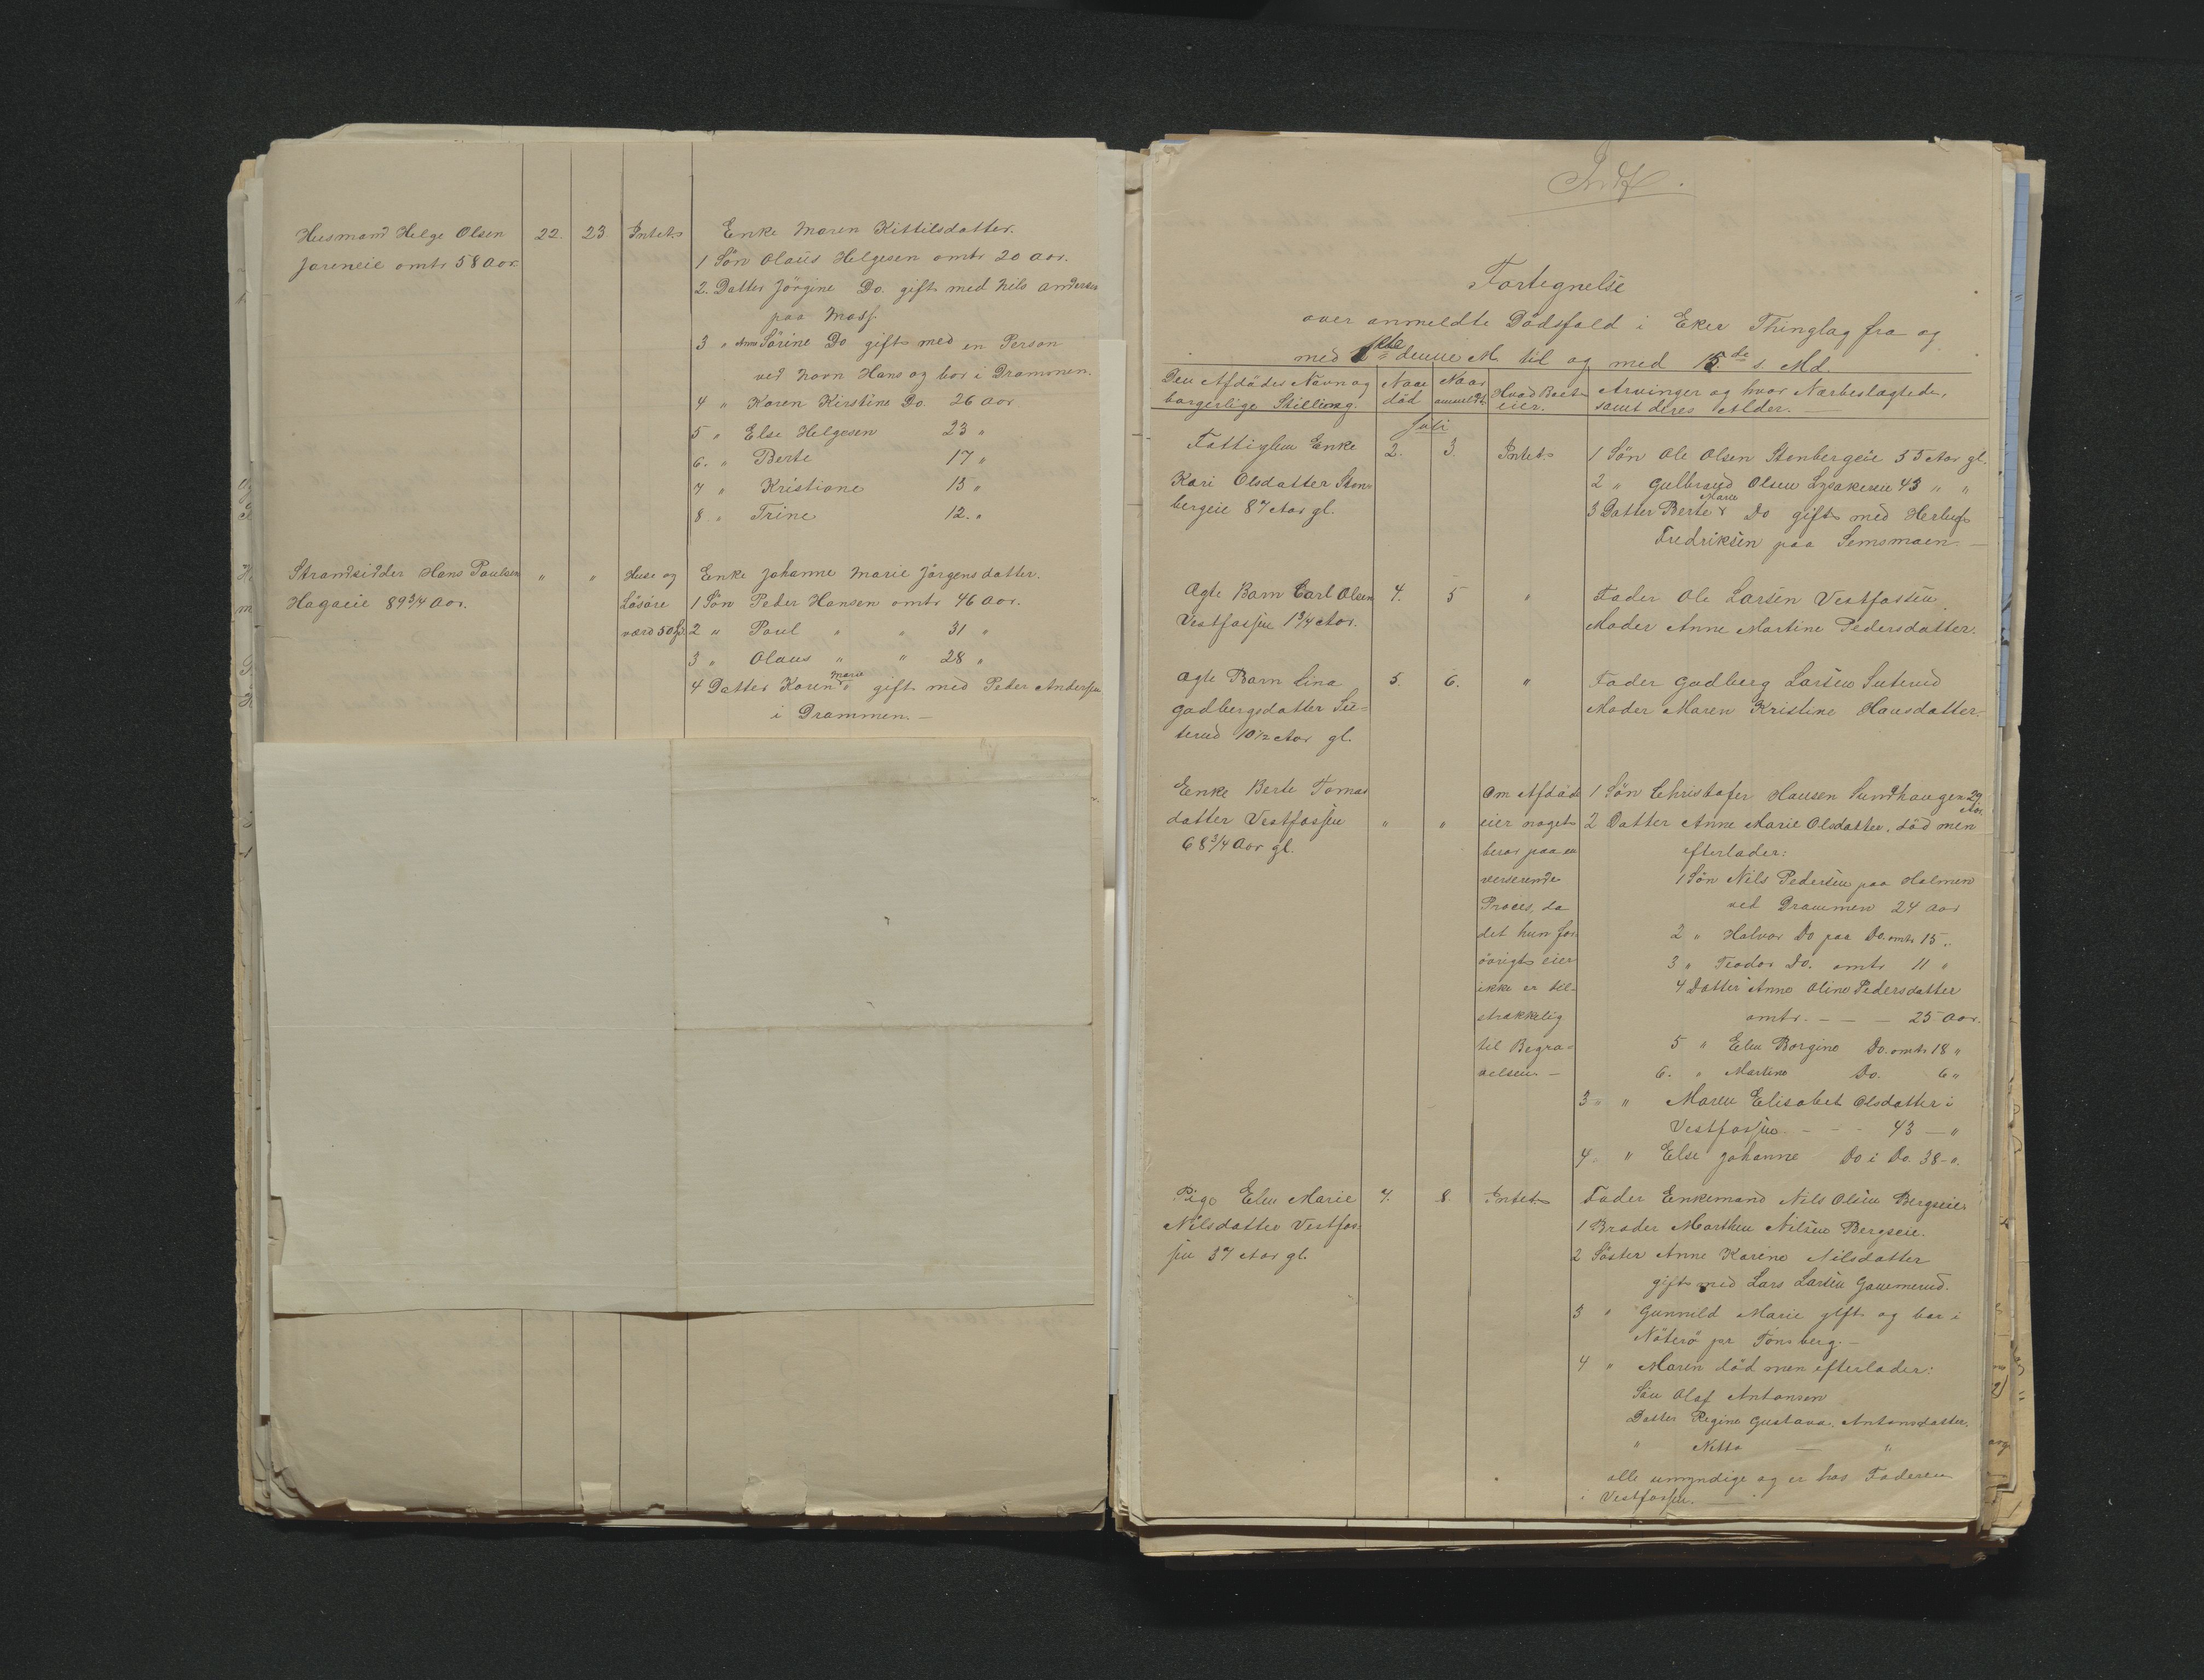 Husmand Helge Olsen 22. 23 Intet. Enke Maren Kittilsdatter.
Joreneie omtr 58 Aar. 1 Sön Olaus Helgesen omtr 20 Aar.
2. Datter Jörgine Do. gift med Nils Andersen
paa Moss.
3 " Anne Sörine Do gift med en Person
ved Navn Hans og bor i Drammen.
4 " Karen Kirstine Do. 26 Aar
5 " Else Helgesen 23 "
6. " Berte 17 "
7 " Kristiane 15 "
8 " Trine 12. "
Strandsidder Hans Paulsen " " Huse og Enke Johanne Marie Jörgensdatter.
Hagaeie 89 3/4 Aar. Lösöre 1 Sön Peder Hansen omtr 46 Aar.
værd 50 2 " Paul " " 31 "
3 " Olaus " " 28 "
4 Datter Karen Marie gift med Peder Andersen
i Drammen. —
Fortegnelse
over anmeldte Dödsfald i Eker Thinglag fra og
med denne M. til og med 15de s. Md.
Den Afdödes Navn og borgerlige Stilling. Naar död Naar anmeldt. Hvad Boet eier. Arvinger og hvor Nærbeslægtede, samt deres Alder. —
Juli
Fattiglem Enke 2. 3. Intet. 1 Sön Ole Olsen Stenbergeie 55 Aar gl.
Kari Olsdatter Sten- 2 " Gulbrand Olsen 43 " "
bergeie 87 Aar gl. 3 Datter Berte Marie Do gift med Herluf
Fredriksen paa Semsmoen —
Ægte Barn Carl Olsen 4. 5 " Fader Ole Larsen Vestfossen.
Vestfossen 1 3/4 Aar. Moder Anne Martine Pedersdatter.
Ægte Barn Lina 5. 6. " Fader Gudberg Larsen Suterud
Gudbergsdatter Su- Moder Maren Kristine Hansdatter.
terud 10 1/2 Aar gl.
Enke Berte Tomas Om Afdöde 1 Sön Christofer Hansen Sundhaugen 29 Aar
datter Vestfossen " " eier noget 2 Datter Anne Marie Olsdatter, död men
68 3/4 Aar gl. beror paa en efterlader:
verserende 1 Sön Nils Pedersen paa Holmen
Proces, da ved Drammen 24 Aar
det hun for- 2 " Halvor Do paa Do. omtr 15 "
övrigt eier 3 " Teodor Do. omtr 11 "
ikke er til- 4 Datter Anne Oline Pedersdatter
strækkelig omtr. — — — 25 Aar.
til Begra- 5 " Elen Borgine Do. omtr 18 "
velsen — 6. " Martine Do. 6 "
3 " " Maren Elisabet Olsdatter i
Vestfossen. - - - 43 — "
4. " Else Johanne Do i Do. 38 - ".
Pige Elen Marie 7. 8 Intet. Fader Enkemand Nils Olsen Bergseie
Nilsdatter Vestfos- 1 Broder Marthen Nilsen Bergseie.
sen 37 Aar gl. 2 Söster Anne Karine Nilsdatter
gift med Lars Larsen Gunnerud.
3 " Gunnild Marie gift og bor i
Nöterö pr Tönsberg. —
4 " Maren död men efterlader:
Sön Olaf Antonsen
Datter Regine Gustava. Antonsdatter.
" Netta — "
alle umyndige og er hos Faderen
i Vestfossen. —